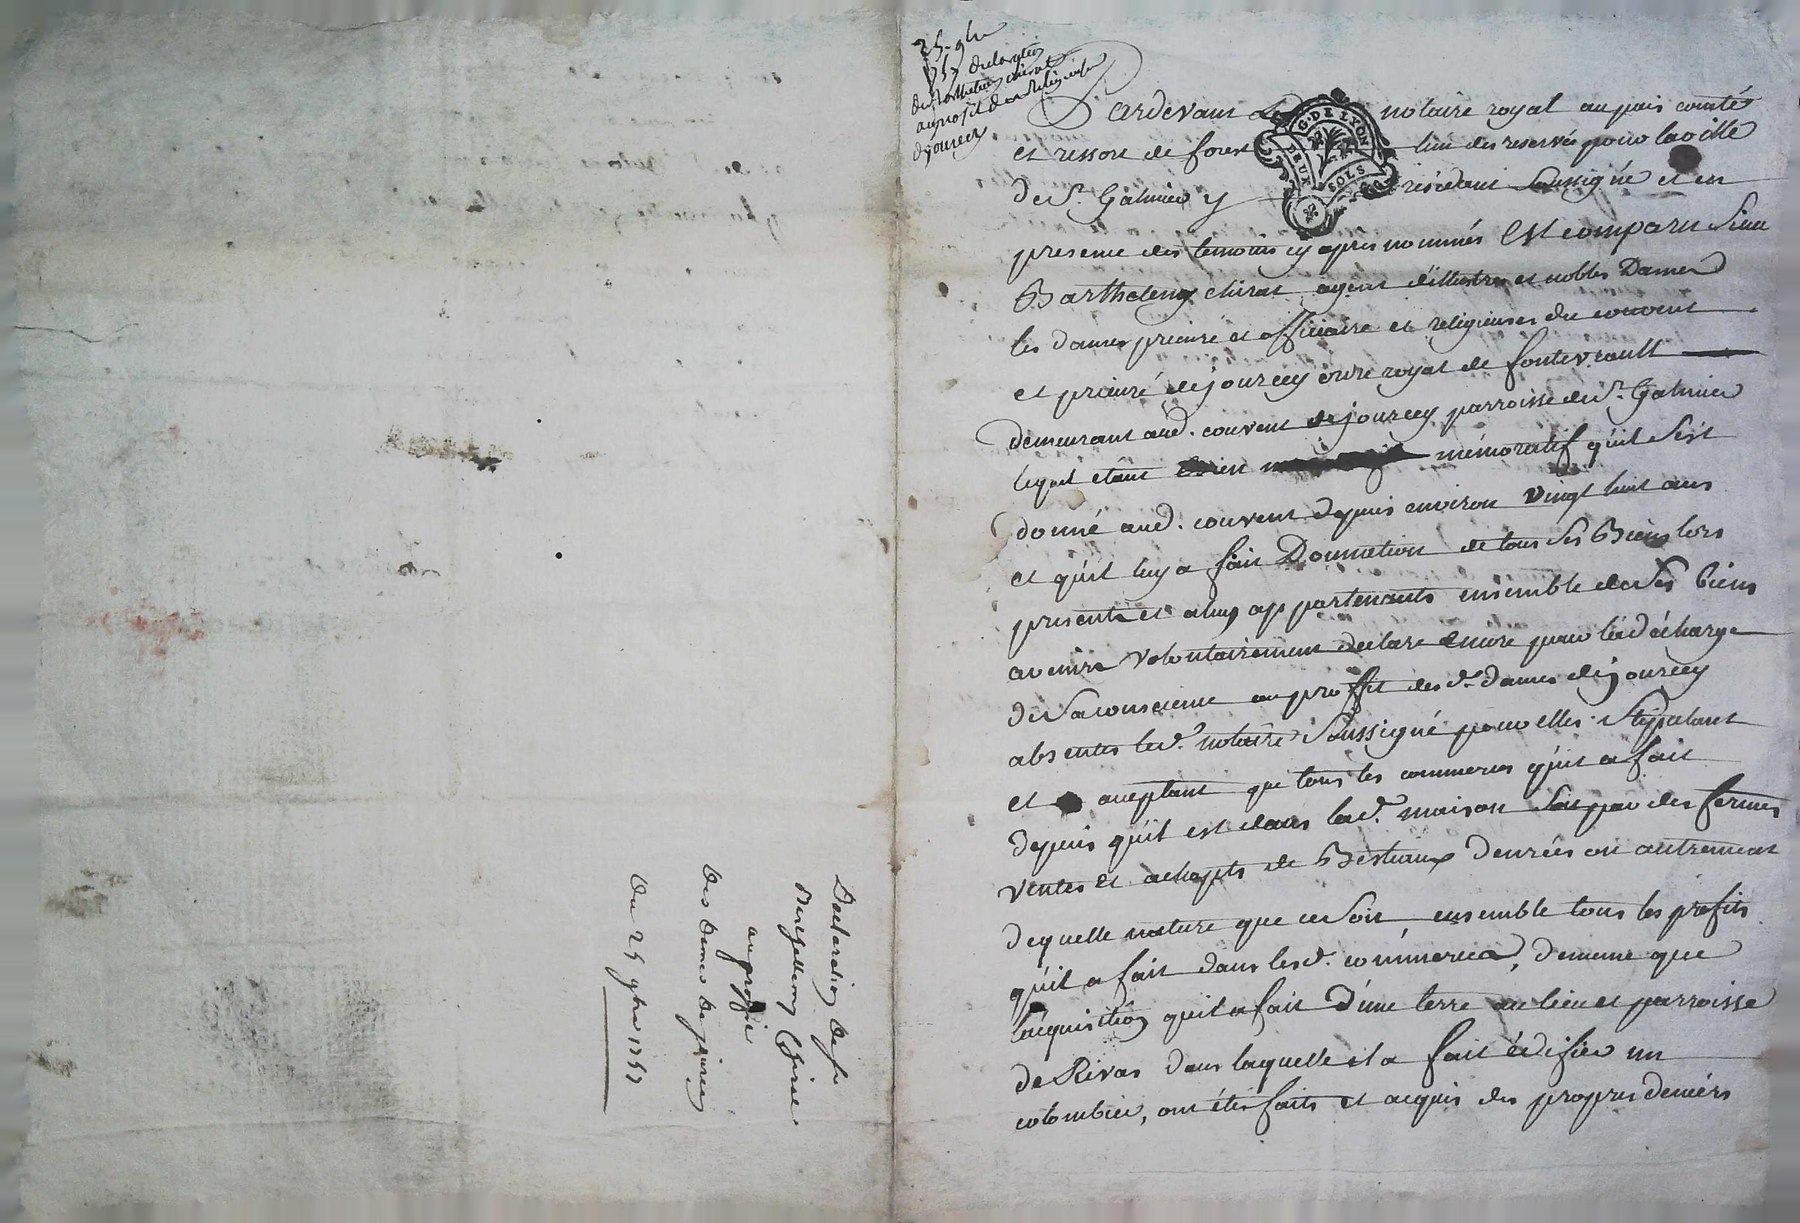 25. 9bre
1757 declaration
de Barthelemy chirat
au profit des Religieuses
de jourcey
Pardevant Le notaire royal au païs comté
et ressort de forest lun des reservés pour la ville
de St. Galmier y résidant soussigné et en
presence des temoins cy apres nommés Est comparu Sieur
Barthelemy chirat agent d'illustres et nobles Dames
les dames prieure et officiaire et religieuses du couvent
et prieuré de jourcey ordre royal de fontevrault
demeurant aud. couvent de jourcey parroisse de St. Galmier
lequel etant bien mémoratif qu'il s'est
donné aud. couvent depuis environ vingt huit ans
et quil luy a fait Donnation de tous ses Biens lors
presents et a luy appartenants ensemble de ses biens
avenirs volontairement declare encore pour la décharge
de sa conscience au proffit desd. dames de jourcey
absentes led. notaire soussigné pour elles stipulant
et aceptant que tous les commerces qu'il a fait
depuis qu'il est dans lad. maison soit par des fermes
ventes et achapts de Bestiaux denrées ou autrement
de quelle nature que ce soit ensemble tous les profits
qu'il a fait dans lesd. commerces, de meme que
l'acquisition qu'il a fait d'une terre au lieu et parroisse
de Rivas dans laquelle il a fait édifier un
colombier, ont étés faits et acquis des propres deniers
G. DE LYON
DEUX SOLS
Declaration de sr
Barthellemy Chirat
au proffit
des Dames de jourcey
du 25 9bre 1757